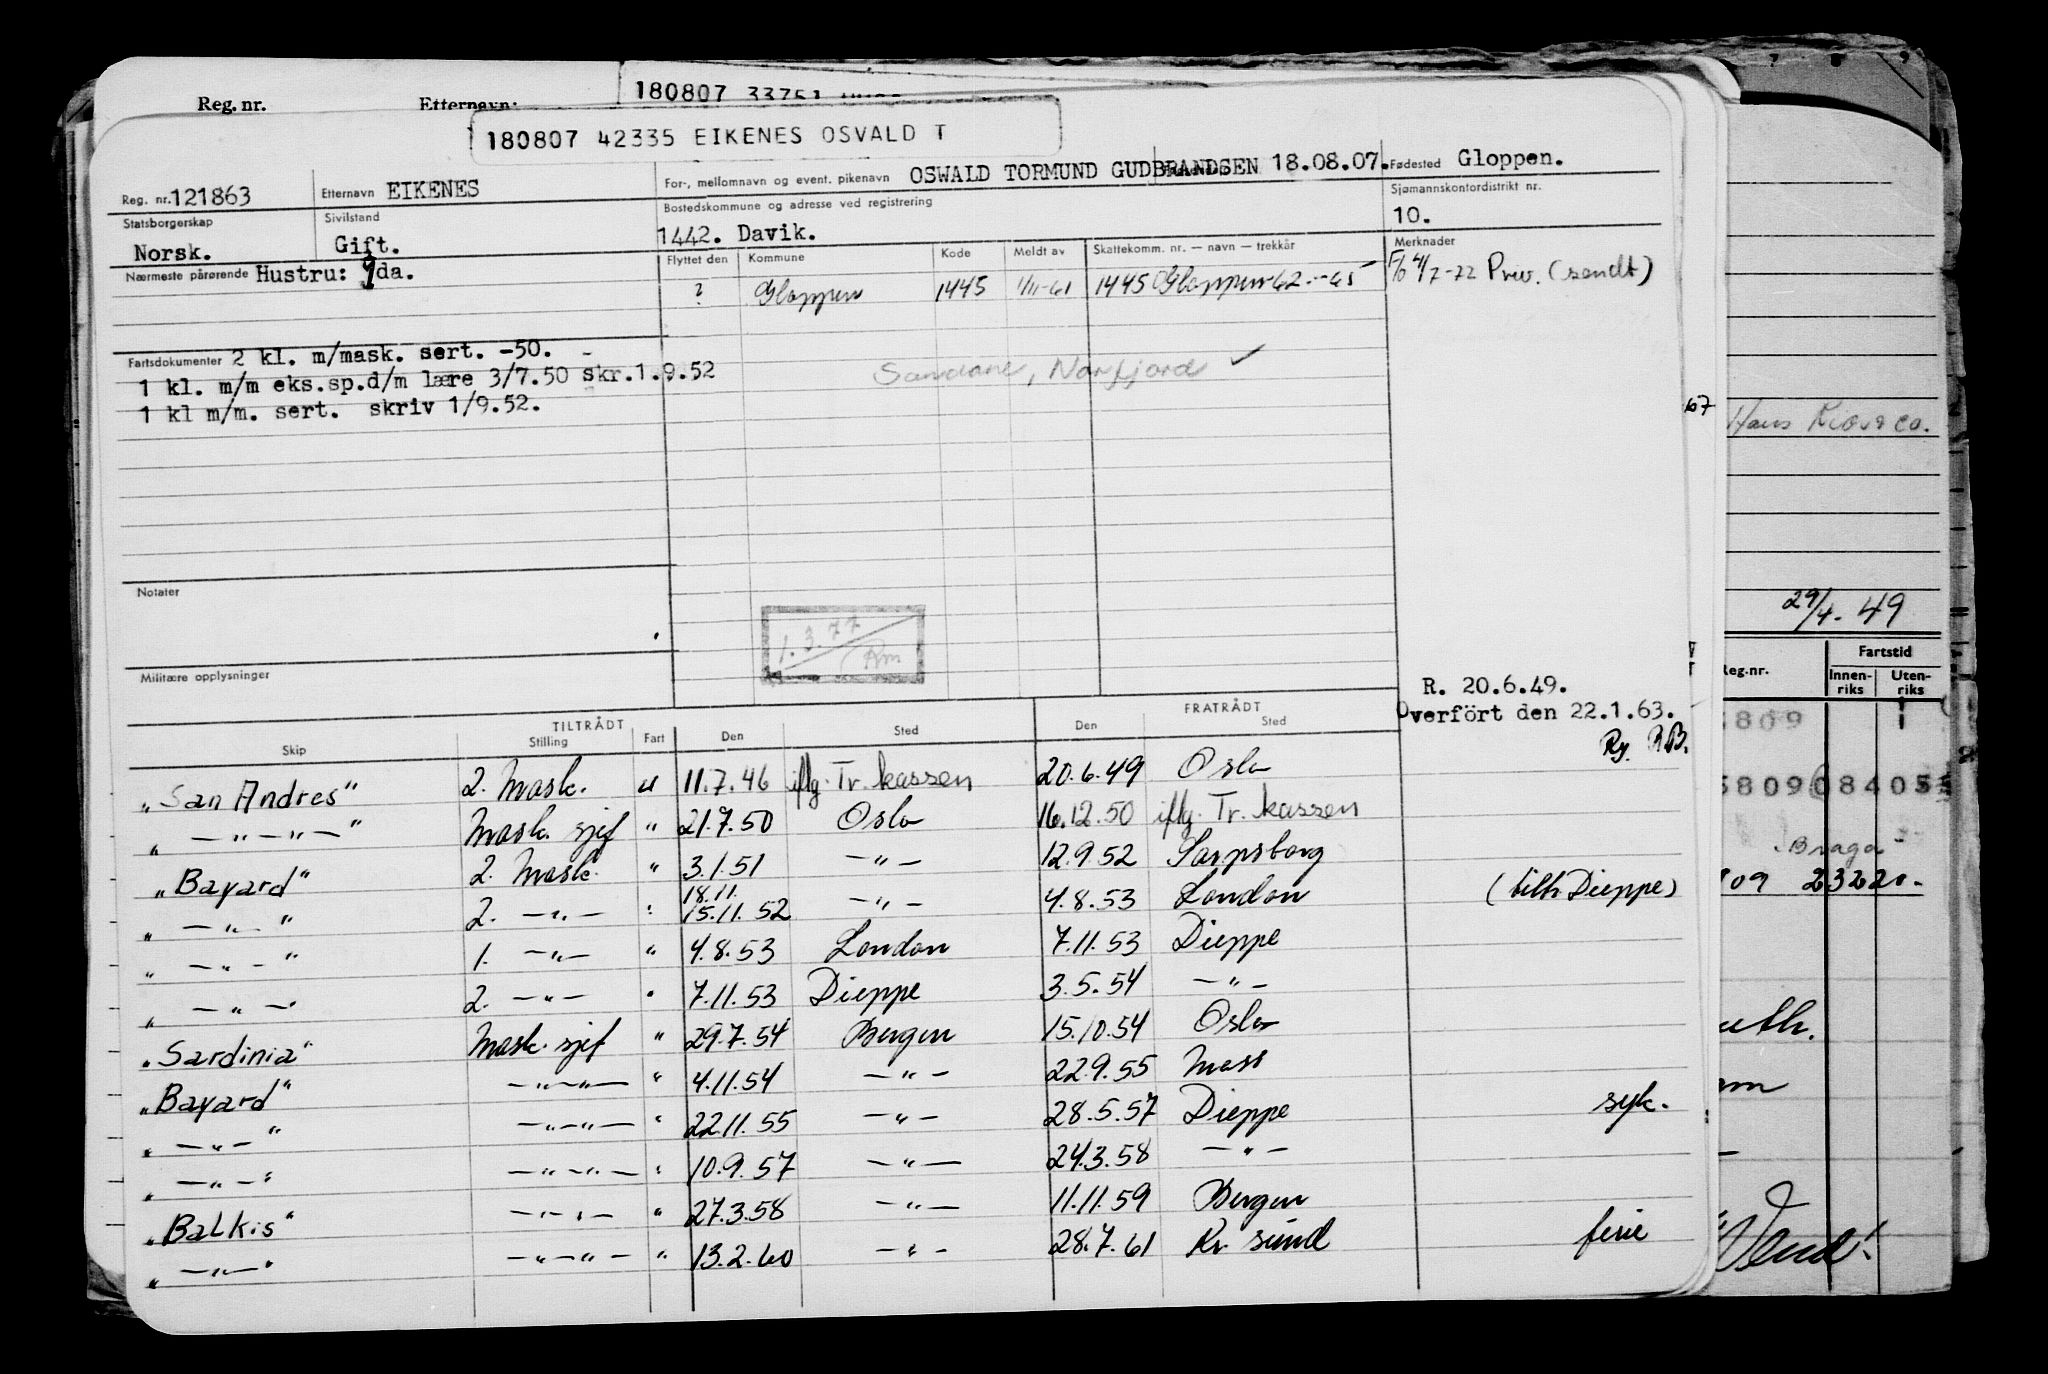 Reg. nr. Etternavn: 180807 33751
180807 42335 EIKENES OSVALD T
Reg. nr. 121863 Etternavn EIKENES For-, mellomnavn og event. pikenavn OSWALD TORMUND GUDBRANDSEN 18.08.07. Fødested Gloppen.
Statsborgerskap Norsk. Sivilstand Gift. Bostedskommune og adresse ved registrering 1442. Davik. Sjømannskontordistrikt nr. 10.
Nærmeste pårørende Hustru: Ida.
Flyttet den Kommune Kode Meldt av Skattekomm. nr. — navn — trekkår Merknader
? Gloppen 1445 1/11-61 1445 Gloppen-62.--65 F/o 4/7-72 Priv. (sendt)
Fartsdokumenter 2 kl. m/mask. sert. -50.
1 kl. m/m eks.sp.d/m lære 3/7.50 skr.1.9.52
1 kl m/m. sert. skriv 1/9.52.
Sandane, Norfjord ✓
Notater
1.3.77 Rm
Militære opplysninger
R. 20.6.49.
Overfört den 22.1.63.
Ry. R.B.
TILTRÅDT FRATRÅDT
Skip Stilling Fart Den Sted Den Sted
"San Andres" 2. Mask. u 11.7.46 iflg. Tr. kassen 20.6.49 Oslo
" — " — " — " Mask. sjef " 21.7.50 Oslo 16.12.50 iflg. Tr. kassen
"Bayard" 2. Mask. " 3.1.51 — " — 12.9.52 Sarpsborg
" — " — " 2. — " — " 18.11. 15.11.52 — " — 4.8.53 London (tilh. Dieppe)
" — " — " 1. — " — " 4.8.53 London 7.11.53 Dieppe
" — " — " 2. — " — " 7.11.53 Dieppe 3.5.54 — " —
"Sardinia" Mask. sjef " 29.7.54 Bergen 15.10.54 Oslo
"Bayard" — " — " — " 4.11.54 — " — 22.9.55 Moss
" — " — " — " — " — " 22.11.55 — " — 28.5.57 Dieppe syk.
" — " — " — " — " — " 10.9.57 — " — 24.3.58 — " —
"Balkis" — " — " — " 27.3.58 — " — 11.11.59 Bergen
" — " — " — " — " — " 13.2.60 — " — 28.7.61 Kr. sund ferie
67
Hans Kiær & Co.
29/4. 49
Reg.nr. Fartstid
Innenriks Utenriks
809
5809084055
"Braga"
109 23220.
Vend!